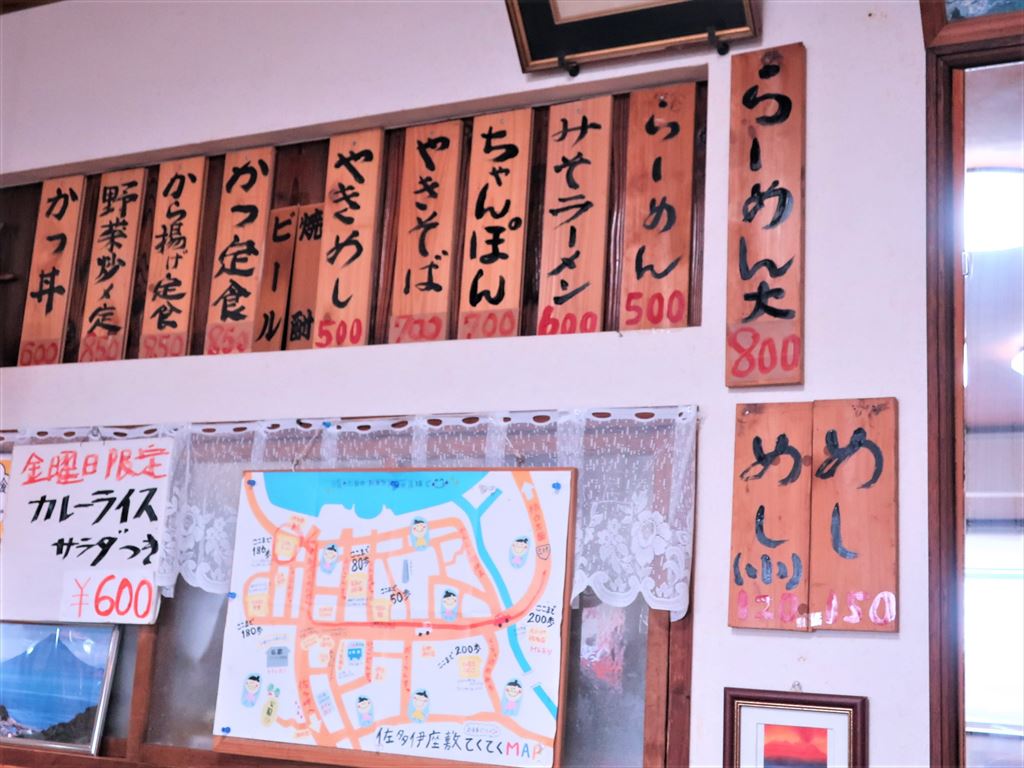 らーめん大
800
らーめん
500
みそラーメン
600
ちゃんぽん
700
やきそば
700
やきめし
500
焼酎
ビール
かつ定食
850
から揚げ定食
850
野菜炒メ定
850
かつ丼
600
めし
150
めし(小)
120
金曜日限定
カレーライス
サラダつき
¥600
ここまで
186歩
ここまで
80歩
ここまで
50歩
ここまで
200歩
ここまで
180歩
ここまで
200歩
佐多伊座敷てくてくMAP